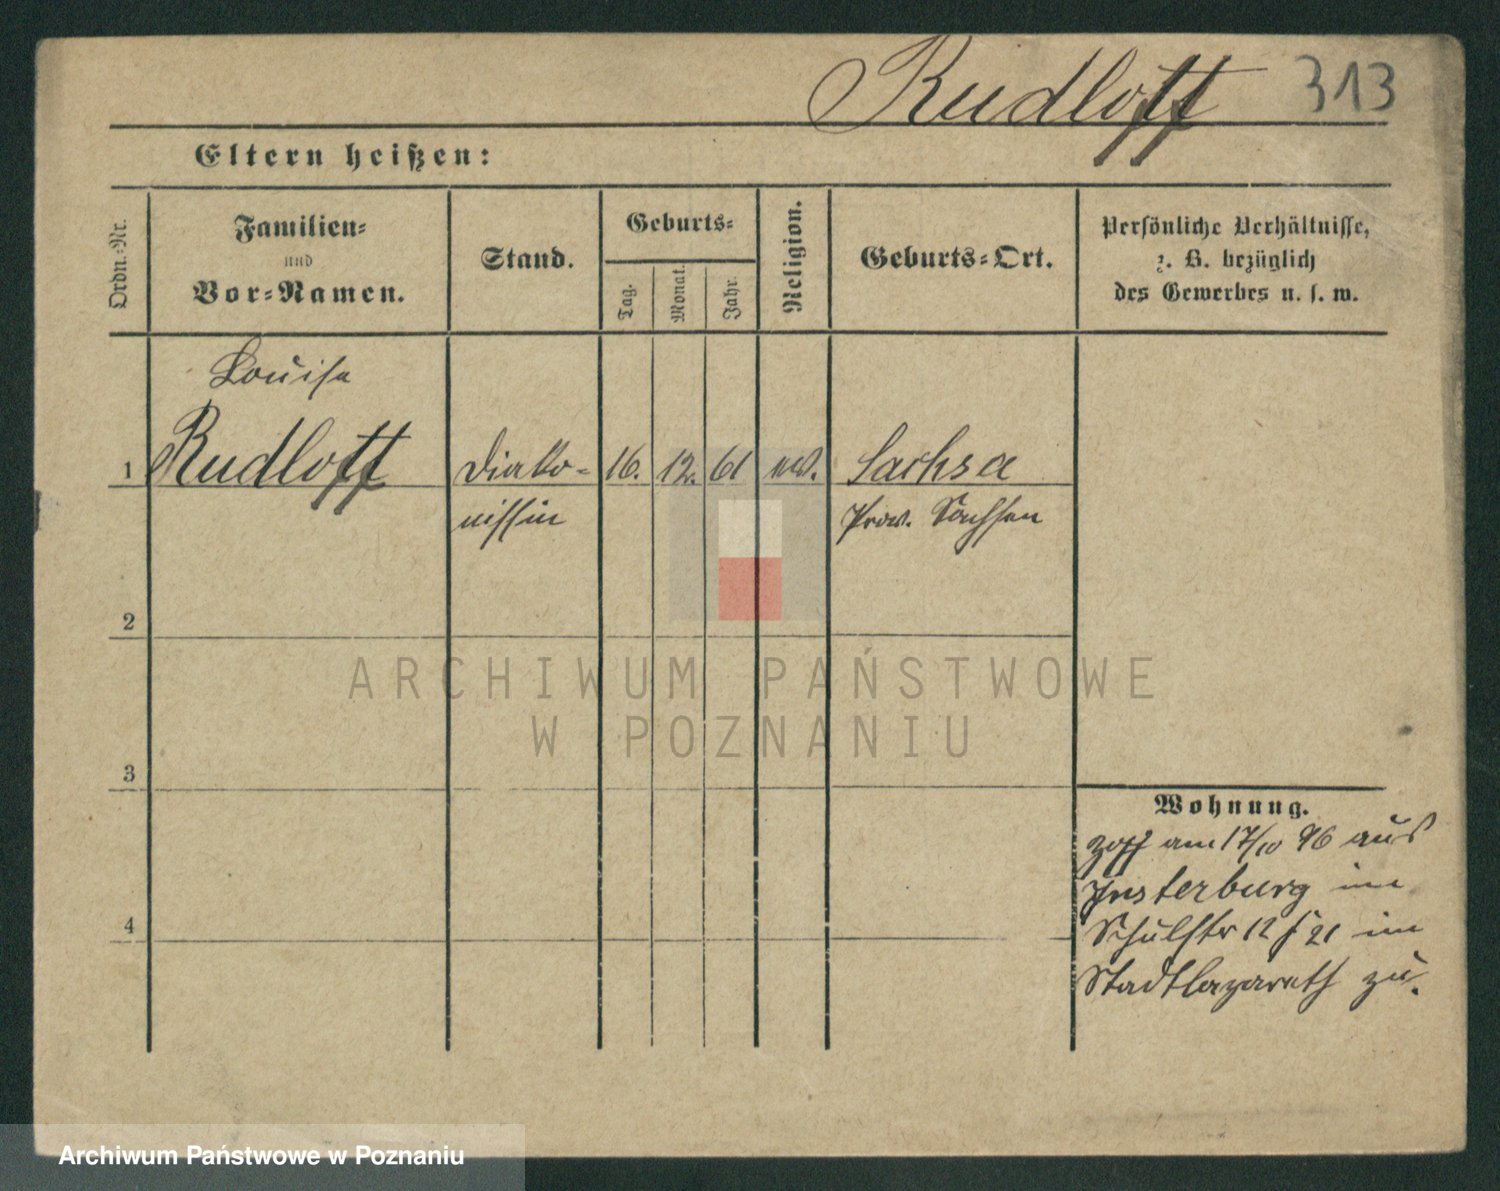 Rudloff 313
Eltern heißen:
Ordn.-Nr.
Familien-
und
Vor-Namen.
Stand.
Geburts-
Tag.
Monat.
Jahr.
Religion.
Geburts-Ort.
Persönliche Verhältnisse,
z. B. bezüglich
des Gewerbes u. s. w.
Louise
1 Rudloff Diako- 16. 12. 61 ev. Sachsa
nissin Prov. Sachsen
2
ARCHIWUM PAŃSTWOWE
W POZNANIU
3
Wohnung.
am 17/10 96 aus
Insterburg
Schulstr 12 21 im
Stadtlazareth zu.
4
Archiwum Państwowe w Poznaniu